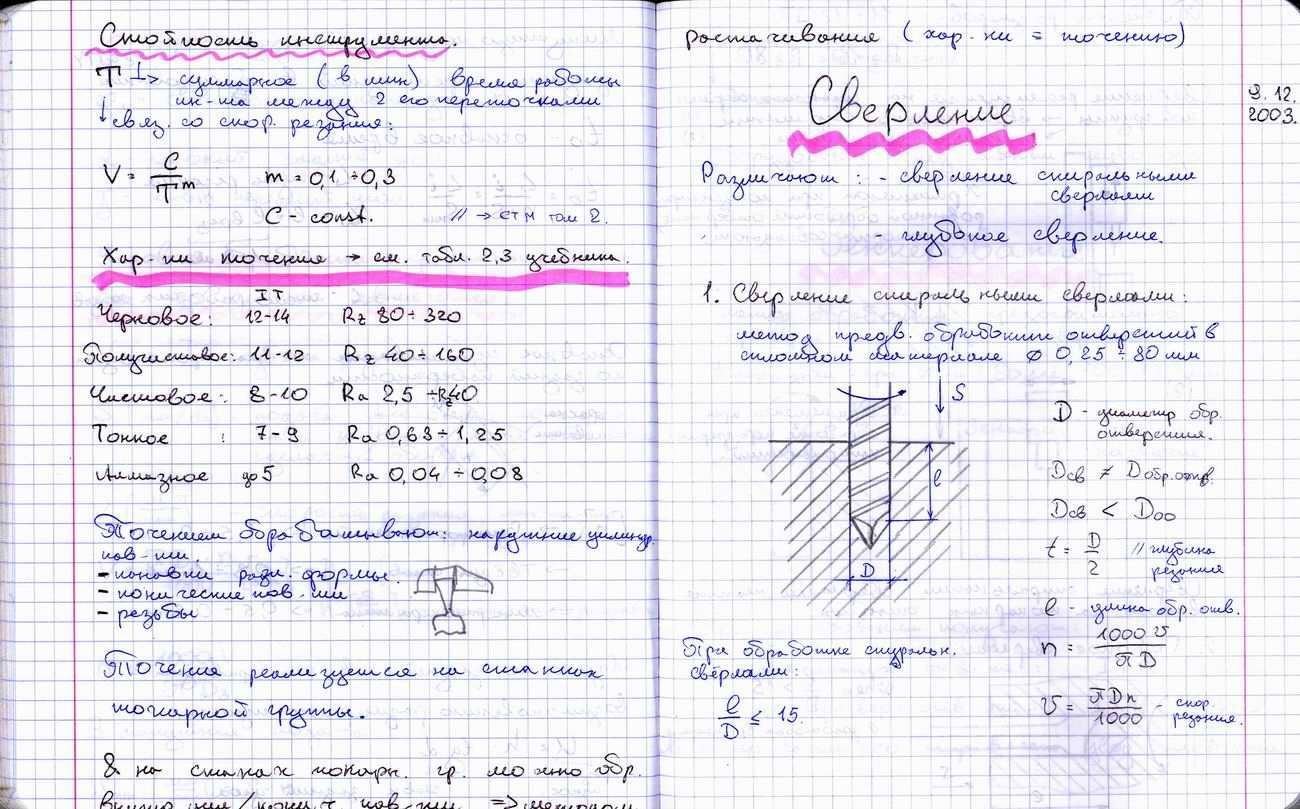 Стойкость инструмента.
T → суммарное (в мин) время работы
ин-та между 2 его переточками
↓ связ. со скор. резания:
V = C / T^m    m = 0,1 ÷ 0,3
C - const.    // → СТМ том 2.
Хар-ки точения → см. табл. 2,3 учебника.
IT
Черновое: 12-14 Rz 80 ÷ 320
Получистовое: 11-12 Rz 40 ÷ 160
Чистовое: 8-10 Ra 2,5 ÷ Rz40
Тонкое : 7-9 Ra 0,63 ÷ 1,25
Алмазное до 5 Ra 0,04 ÷ 0,08
Точением обрабатывают: наружние цилиндр.
пов-ти.
- канавки разл. формы.
- конические пов-ти
- резьбы
Точения реализуется на станках
токарной группы.
& на станах токарн. гр. можно обр.
внутр
пов-ти. => методом
растачивания (хар-ки = точению)
9.12.
2003.
Сверление
Различают : - сверление спиральными
сверлами
- глубокое сверление.
1. Сверление спиральными сверлами:
метод предв. обработки отверстий в
сплошном материале ⌀ 0,25 ÷ 80 мм
S
l
D
D - диаметр обр.
отверстия.
Dсв ≠ Dобр.отв.
Dсв < Dоо
t = D / 2 // глубина
резания
l - длина обр. отв.
n = 1000 v / πD
v = πDn / 1000 - скор.
резания.
При обработке спиральн.
свёрлами:
l / D ≤ 15.